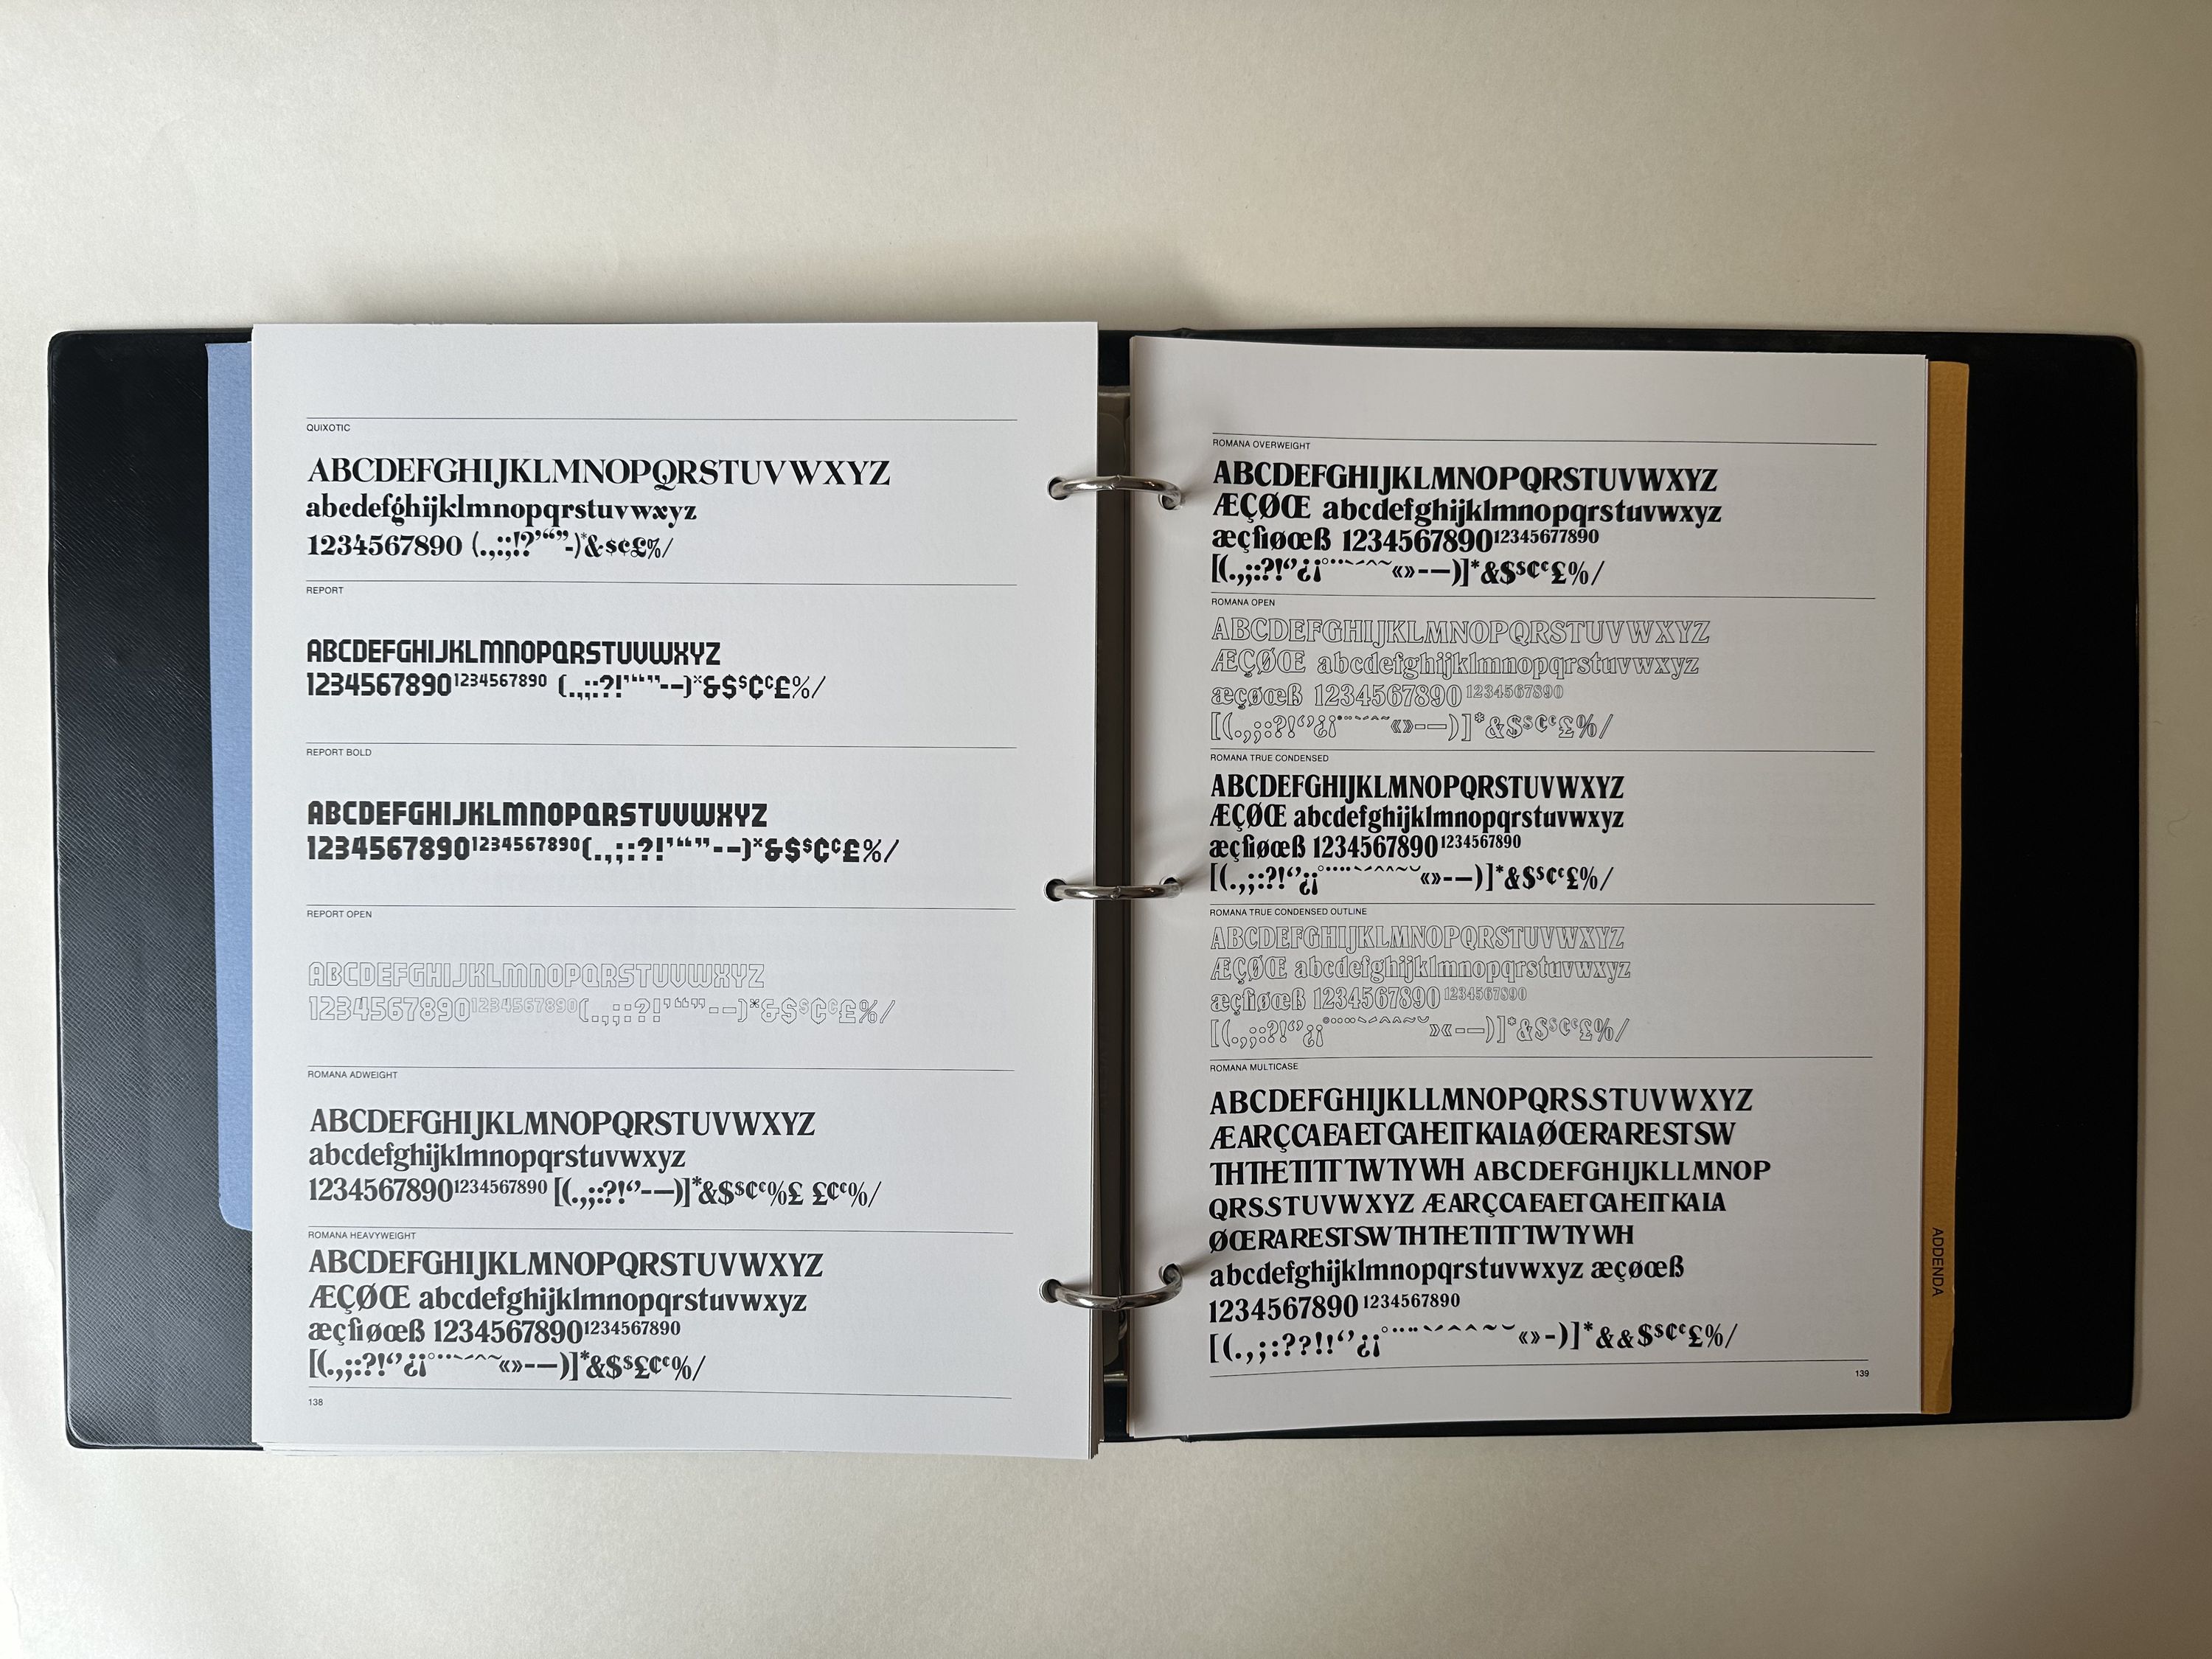 QUIXOTIC
ABCDEFGHIJKLMNOPQRSTUVWXYZ
abcdefghijklmnopqrstuvwxyz
1234567890 (.,:;!?’“”-)*&$¢£%/
REPORT
ABCDEFGHIJKLMNOPQRSTUVWXYZ
1234567890 1234567890 (.,;:?!’“”-–)*&$$¢¢£%/
REPORT BOLD
ABCDEFGHIJKLMNOPQRSTUVWXYZ
1234567890 1234567890 (.,;:?!’“”-–)*&$$¢¢£%/
REPORT OPEN
ABCDEFGHIJKLMNOPQRSTUVWXYZ
1234567890 1234567890 (.,;:?!’“”-–)*&$$¢¢£%/
ROMANA ADWEIGHT
ABCDEFGHIJKLMNOPQRSTUVWXYZ
abcdefghijklmnopqrstuvwxyz
1234567890 1234567890 [(.,;:?!‘’-—)]*&$$¢¢%£ £¢¢%/
ROMANA HEAVYWEIGHT
ABCDEFGHIJKLMNOPQRSTUVWXYZ
ÆÇØŒ abcdefghijklmnopqrstuvwxyz
æçfiøœß 1234567890 1234567890
[(.,;:?!‘’¿¡°¨¨`´^˜«»-—)]*&$$£¢¢%/
138
ROMANA OVERWEIGHT
ABCDEFGHIJKLMNOPQRSTUVWXYZ
ÆÇØŒ abcdefghijklmnopqrstuvwxyz
æçfiøœß 1234567890 12345677890
[(.,;:?!‘’¿¡°¨¨`´^˜«»-—)]*&$$¢¢£%/
ROMANA OPEN
ABCDEFGHIJKLMNOPQRSTUVWXYZ
ÆÇØŒ abcdefghijklmnopqrstuvwxyz
æçøœß 1234567890 1234567890
[(.,;:?!‘’¿¡°¨`´^˜«»-—)]*&$$¢¢£%/
ROMANA TRUE CONDENSED
ABCDEFGHIJKLMNOPQRSTUVWXYZ
ÆÇØŒ abcdefghijklmnopqrstuvwxyz
æçfiøœß 1234567890 1234567890
[(.,;:?!‘’¿¡°¨¨`´^^˜˘«»-—)]*&$$¢¢£%/
ROMANA TRUE CONDENSED OUTLINE
ABCDEFGHIJKLMNOPQRSTUVWXYZ
ÆÇØŒ abcdefghijklmnopqrstuvwxyz
æçfiøœß 1234567890 1234567890
[(.,;:?!‘’¿¡°¨¨`´^^˜˘»«-—)]*&$$¢¢£%/
ROMANA MULTICASE
ABCDEFGHIJKLLMNOPQRSSTUVWXYZ
ÆARÇCAEAETGAHEITKALAØŒRARESTSW
THTHETITTTWTYWH ABCDEFGHIJKLLMNOP
QRSSTUVWXYZ ÆARÇCAEAETGAHEITKALA
ØŒRARESTSWTHTHETITTTWTYWH
abcdefghijklmnopqrstuvwxyz æçøœß
1234567890 1234567890
[(.,;:??!!‘’¿¡°¨¨`´^^˜˘«»-)]*&&$$¢¢£%/
139
ADDENDA